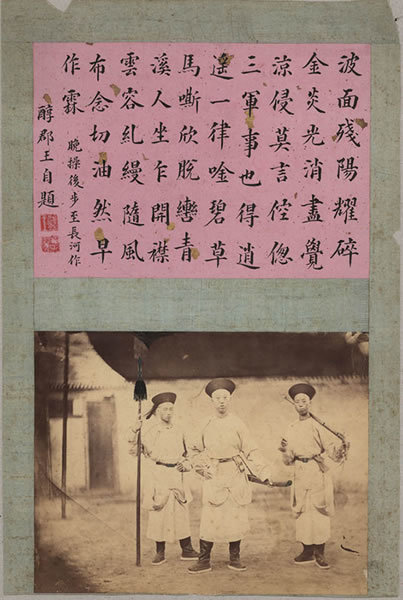 波面殘陽耀碎
金炎光消盡覺
涼侵莫言倥偬
三軍事也得逍
遙一律唫碧草
馬嘶欣脫轡青
溪人坐乍開襟
雲容糺縵隨風
布念切油然早
作霖
晚操後步至長河作
醇郡王自題